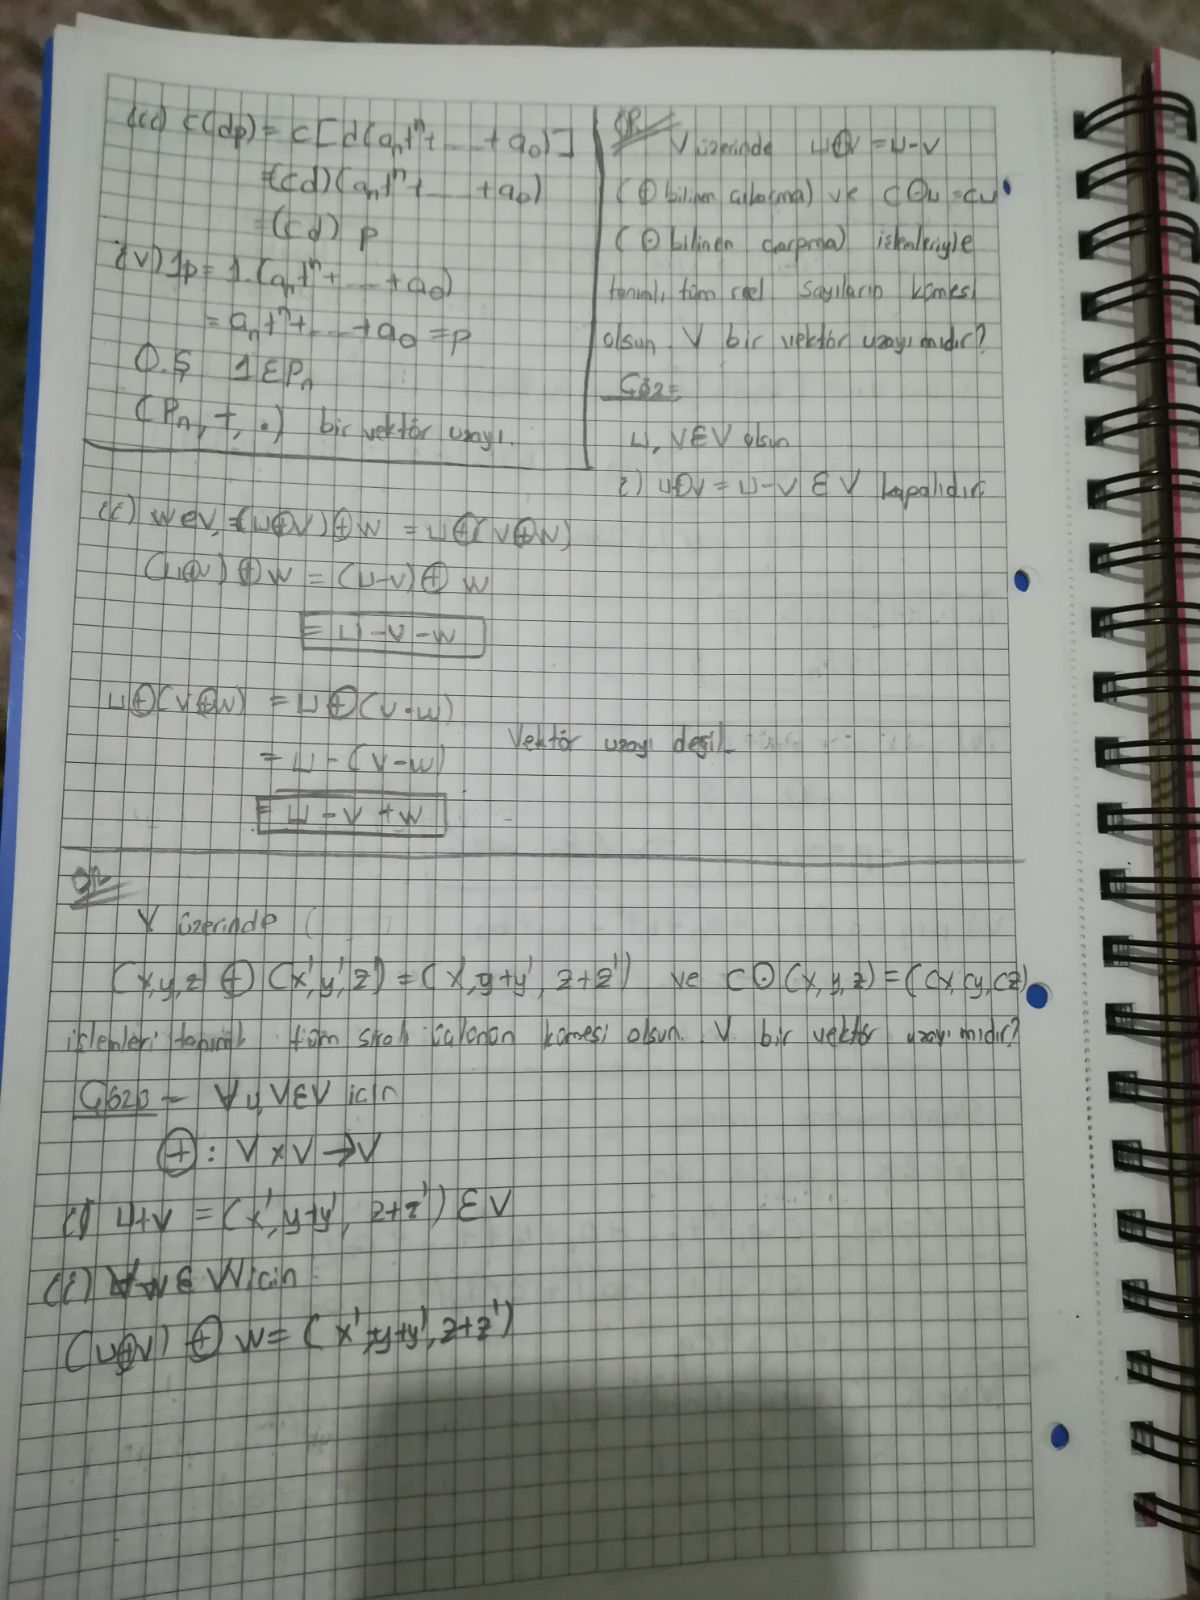 iii) c(dp) = c[d(aₙtⁿ+...+a₀)]
=(cd)(aₙtⁿ+...+a₀)
=(cd) p
iv) 1p = 1.(aₙtⁿ+...+a₀)
= aₙtⁿ+...+a₀ = p
Ö.Ş 1 ε Pₙ
(Pₙ, +, ·) bir vektör uzayı.
ÖR
V üzerinde u⊕v = u-v
(⊕ bilinen çıkarma) ve c⊙u = cu
(⊙ bilinen çarpma) işlemleriyle
tanımlı, tüm reel sayıların kümesi
olsun. V bir vektör uzayı mıdır?
Çöz=
u, v ε V olsun
i) u⊕v = u-v ε V kapalıdır.
ii) w ε V, =(u⊕v)⊕w = u⊕(v⊕w)
(u⊕v)⊕w = (u-v)⊕w
= u-v-w
u⊕(v⊕w) = u⊕(v-w)
= u-(v-w)
Vektör uzayı değil
= u-v+w
ÖR
V üzerinde (
(x,y,z) ⊕ (x',y',z') = (x', y+y', z+z') ve c⊙(x,y,z) = (cx, cy, cz)
işlemleri tanımlı tüm sıralı kümesi olsun. V bir vektör uzayı mıdır?
Çözp - ∀ u, v ε V için
⊕: V x V → V
i) u+v = (x', y+y', z+z') ε V
ii) ∀ w ε W için
(u⊕v) ⊕ w = (x', y+y', z+z')